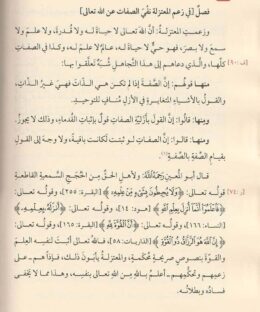 فصلٌ [في زعم المعتزلة نفي الصفات عن الله تعالى]
وزعمتِ المعتزلةُ: أنَّ الله تعالى لا حياةَ له، ولا قُدرةَ، ولا علمَ ولا
سمعَ ولا بصرَ، فهو حيٌّ لا حياةَ له، عالمٌ لا علمَ له، وكذا في الصفات
كلِّها، والَّذي دعاهم إلى هذا التَّجاهلِ شُبَهٌ تَعلَّقوا بها:
[ف ٩٠/]
منها: قولُهم: إنَّ الصِّفةَ إذا لم تكن هي الذَّاتَ فهي غيرُ الذَّات،
والقولُ بالأشياءِ المتغايرةِ في الأزلِ مُنافٍ للتوحيد.
ومنها: قالوا: إنَّ القولَ بأزليَّةِ الصِّفاتِ قولٌ بإثباتِ القُدماءِ، وذلك لا يجوزُ.
ومنها: قالوا: إنَّ الصفاتِ لو ثبتت لكانت باقيةً، وفيه إلى القول
بقيامِ الصِّفةِ بالصِّفةِ
قال أبو المعين رَحِمَهُ اللهُ: ولأهلِ الحقِّ مِن الحُجَجِ السَّمعيةِ القاطعةِ
[ز ٧٤/] قولُه تعالى: ﴿وَلَا يُحِيطُونَ بِشَيْءٍ مِّنْ عِلْمِهِ﴾ [البقرة: ٢٥٥]، وقولُه تعالى:
﴿فَاعْلَمُوا أَنَّمَا أُنزِلَ بِعِلْمِ اللَّهِ﴾ [هود: ١٤]، وقولُه تعالى: ﴿أَنزَلَهُ بِعِلْمِهِ﴾
[النساء: ١٦٦]، وقولُه تعالى: ﴿أَنَّ الْقُوَّةَ لِلَّهِ﴾ [البقرة: ١٦٥]، وقولُه تعالى:
﴿إِنَّ اللَّهَ هُوَ الرَّزَّاقُ ذُو الْقُوَّةِ﴾ [الذاريات: ٥٨]، فاللهُ تعالى أثبتَ لنفسِه العِلمَ
والقوَّةَ بنصوصٍ صريحةٍ مُحكَمةٍ، والمعتزلةُ يأبَونَ ذلك، فإذًا هم ـ على
زعمِهم وتحكُّمِهم ـ أعلمُ باللهِ مِن اللهِ تعالى بنفسِه، وهذا مما لا يخفى
فسادُه وبطلانُه.